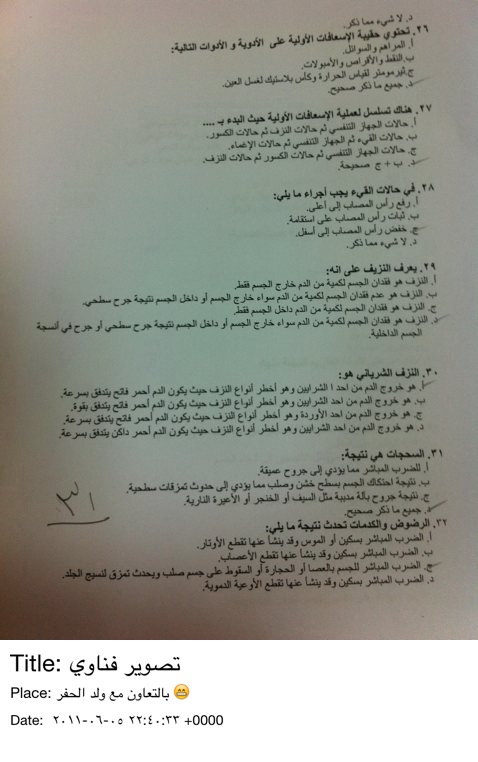 د. لا شيء مما ذكر.
٢٦. تحتوي حقيبة الإسعافات الأولية على الأدوية و الأدوات التالية:
أ. المراهم والسوائل.
ب. النقط والأقراص والأمبولات.
ج. ثيرمومتر لقياس الحرارة وكأس بلاستيك لغسل العين.
د. جميع ما ذكر صحيح.
٢٧. هناك تسلسل لعملية الإسعافات الأولية حيث البدء بـ ....
أ. حالات الجهاز التنفسي ثم حالات النزف ثم حالات الكسور.
ب. حالات القيء ثم الجهاز التنفسي ثم حالات الإغماء.
ج. حالات الجهاز التنفسي ثم حالات الكسور ثم حالات النزف.
د. ب + ج صحيحة.
٢٨. في حالات القيء يجب أجراء ما يلي:
أ. رفع رأس المصاب إلى أعلى.
ب. ثبات رأس المصاب على استقامة.
ج. خفض رأس المصاب إلى أسفل.
د. لا شيء مما ذكر.
٢٩. يعرف النزيف على انه:
أ. النزف هو فقدان الجسم لكمية من الدم خارج الجسم فقط.
ب. النزف هو عدم فقدان الجسم لكمية من الدم سواء خارج الجسم أو داخل الجسم نتيجة جرح سطحي.
ج. النزف هو فقدان الجسم لكمية من الدم داخل الجسم فقط.
د. النزف هو فقدان الجسم لكمية من الدم سواء خارج الجسم أو داخل الجسم نتيجة جرح سطحي أو جرح في أنسجة
الجسم الداخلية.
٣٠. النزف الشرياني هو:
أ. هو خروج الدم من احد ا الشرايين وهو أخطر أنواع النزف حيث يكون الدم أحمر فاتح يتدفق بسرعة.
ب. هو خروج الدم من احد الشرايين وهو أخطر أنواع النزف حيث يكون الدم أحمر فاتح يتدفق بقوة.
ج. هو خروج الدم من احد الأوردة وهو أخطر أنواع النزف حيث يكون الدم أحمر فاتح يتدفق بسرعة.
د. هو خروج الدم من احد الشرايين وهو أخطر أنواع النزف حيث يكون الدم أحمر داكن يتدفق بسرعة.
٣١. السحجات هي نتيجة:
أ. للضرب المباشر مما يؤدي إلى جروح عميقة.
ب. نتيجة احتكاك الجسم بسطح خشن وصلب مما يؤدي إلى حدوث تمزقات سطحية.
ج. نتيجة جروح بآلة مدببة مثل السيف أو الخنجر أو الأعيرة النارية.
د. جميع ما ذكر صحيح.
٣٢. الرضوض والكدمات تحدث نتيجة ما يلي:
أ. الضرب المباشر بسكين أو الموس وقد ينشأ عنها تقطع الأوتار.
ب. الضرب المباشر بسكين وقد ينشأ عنها تقطع الأعصاب.
ج. الضرب المباشر للجسم بالعصا أو الحجارة أو السقوط على جسم صلب ويحدث تمزق لنسيج الجلد.
د. الضرب المباشر بسكين وقد ينشأ عنها تقطع الأوعية الدموية.
Title: تصوير فناوي
Place: بالتعاون مع ولد الحفر 😁
Date: ٢٠١١-٠٦-٠٥ ٢٢:٤٠:٣٣ +0000